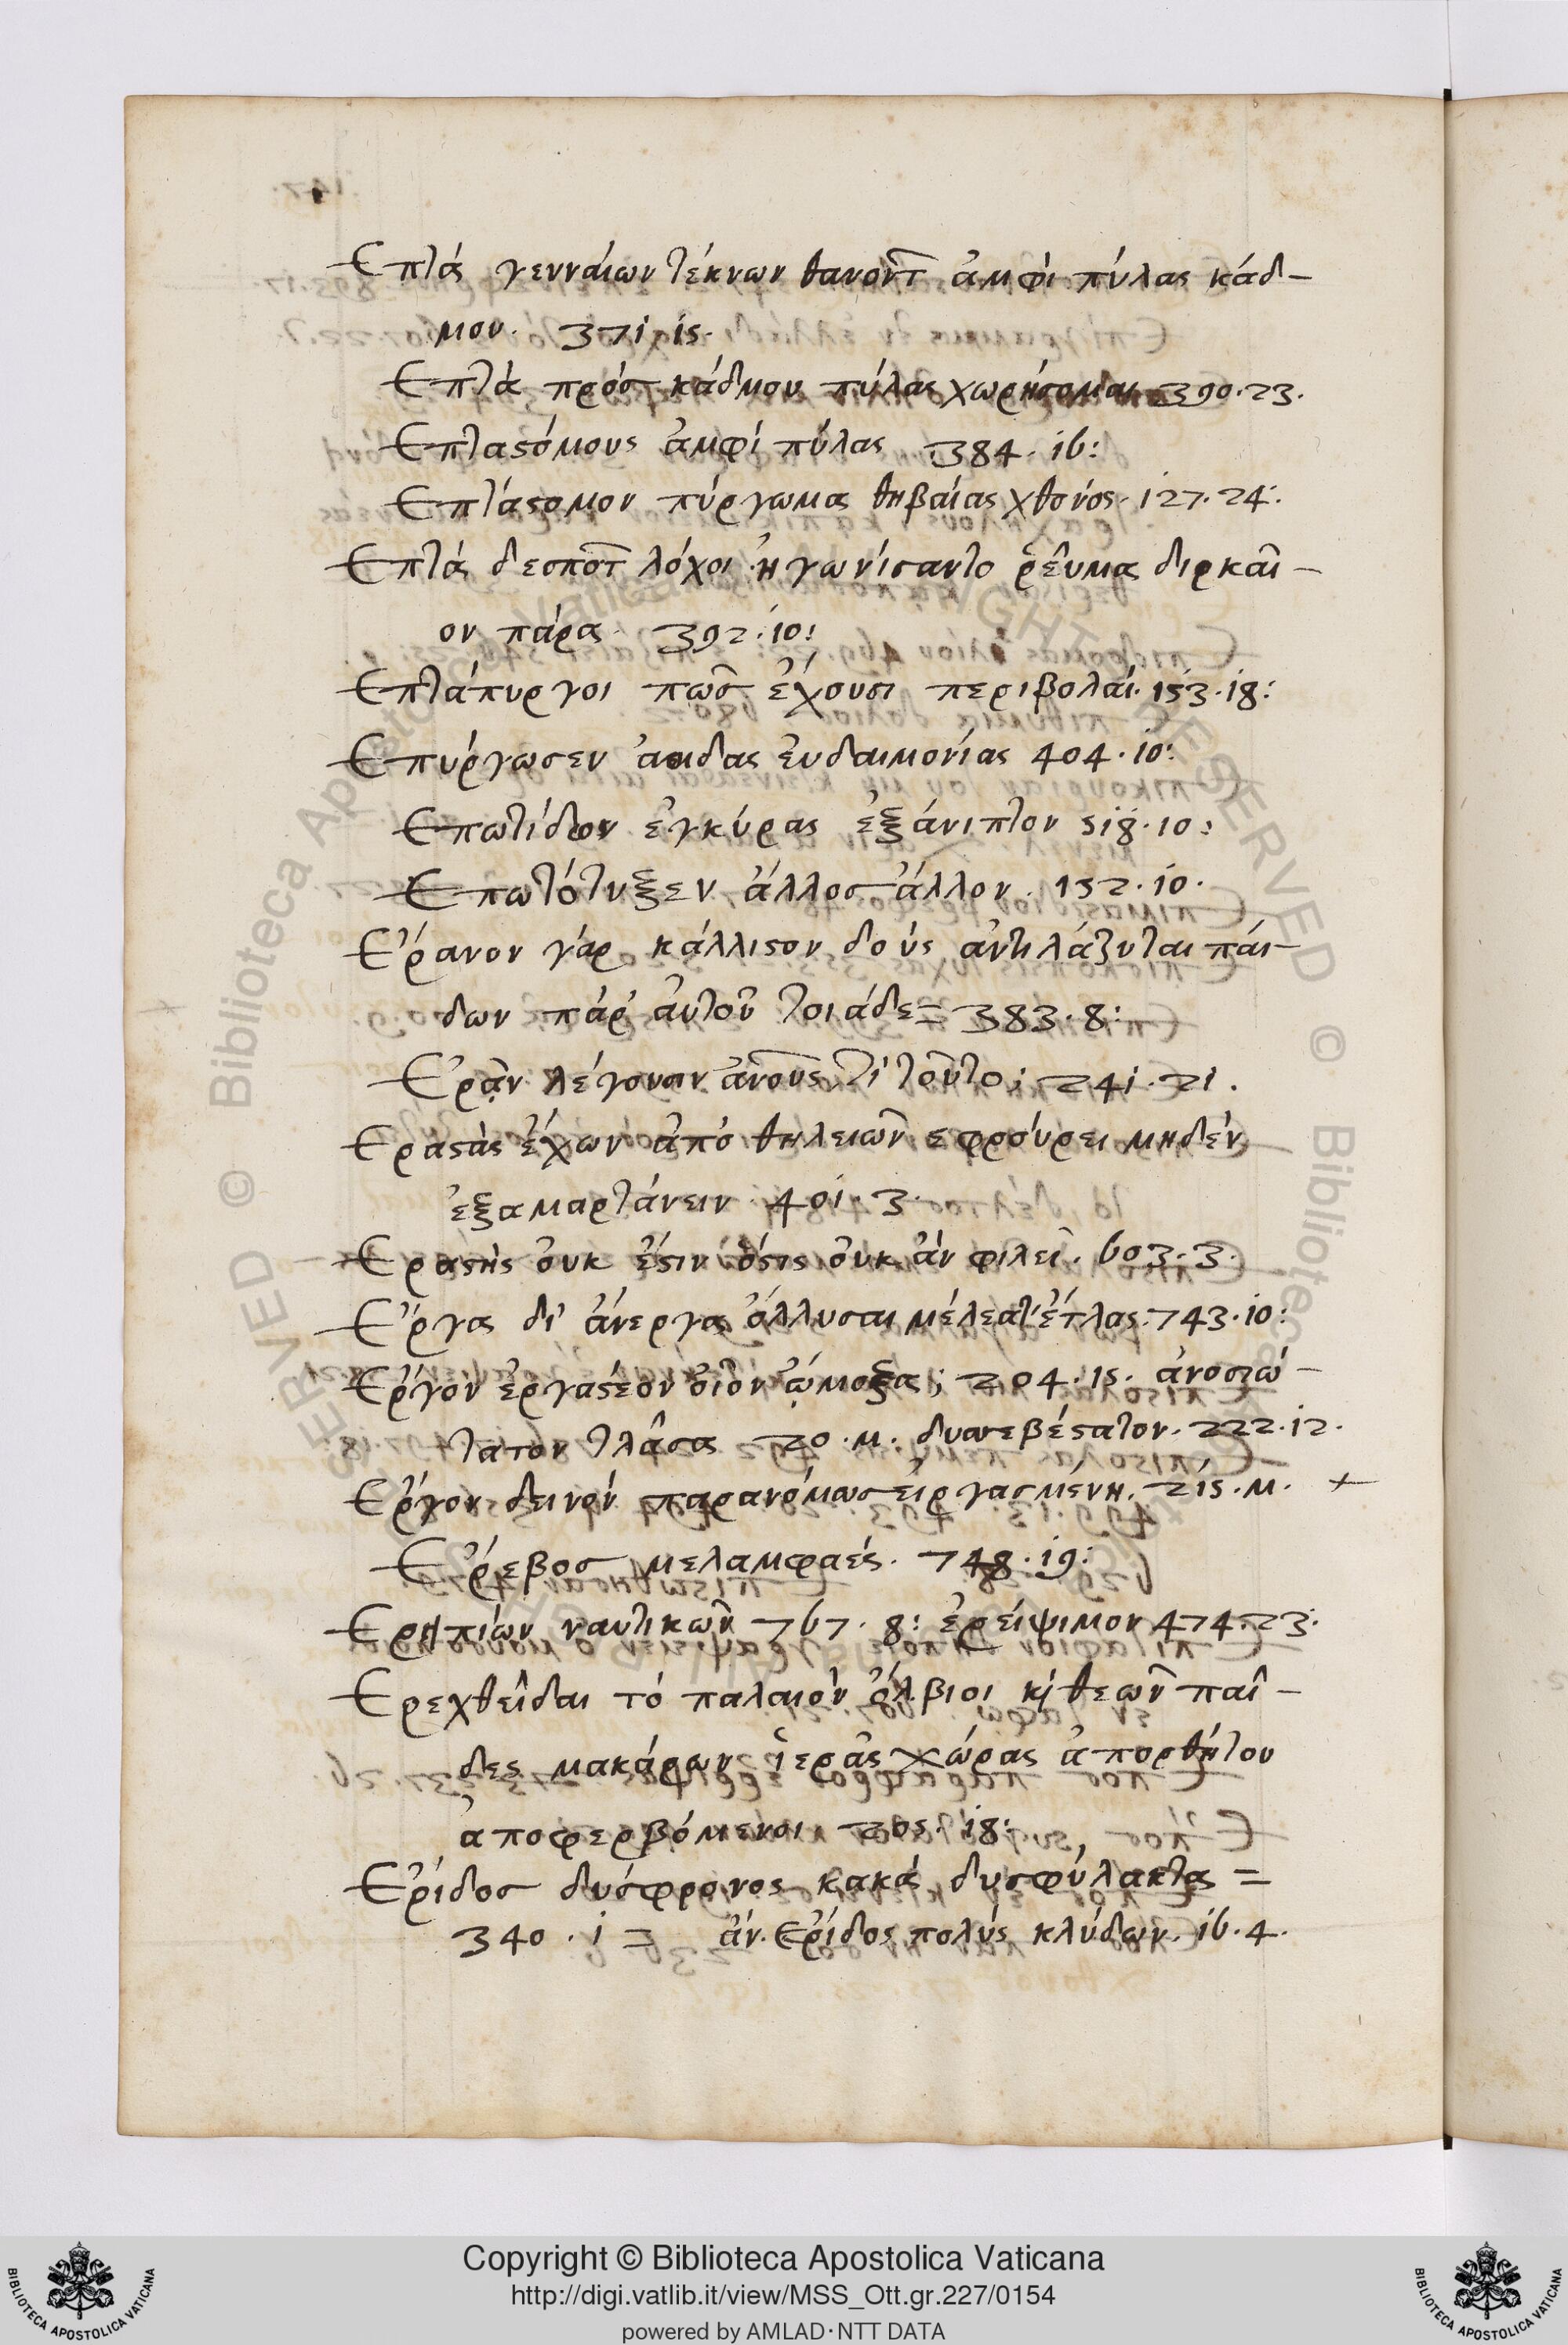 Επτά γενναίων τέκνων θανόντ ἀμφὶ πύλας κάδ-
μου. 371 15.
Επτὰ πρὸσ κάδμου πύλας χωρήσομαι 390.23.
Επταστόμους ἀμφί πύλας 384. 16:
Επτάστομον πύργωμα θηβαίας χθονός. 127.24:
Επτά δεσποτ λόχοι ἠγωνίσαντο ῥεῦμα διρκαῖ-
ον πάρα. 392.10:
Επτάπυργοι πῶσ ἔχουσι περιβολάι. 153.18:
Επύργωσεν ἀοιδας ἐυδαιμονίας 404.10:
Επωτίδων ἐγκύρας ἐξάνιπτον 518.10:
Επωτότυξεν ἄλλοσ ἄλλον. 152.10.
Ερανον γάρ κάλλιστον δούς ἀντιλάζυται πάι-
δων πάρ ἀυτοῦ τοιάδε= 383.8:
Ερᾶν λέγουσιν ἀνους. τί τοῦτο; 241.21.
Εραστὰς ἔχων ἀπὸ θηλειῶν εφρούρει μηδὲν
ἐξαμαρτάνειν. 401.3.
Εραστὴς ὀυκ ἔστιν ὅστις ὀυκ ἀν φιλεῖ. 603.3.
Εργα δι' ἄνεργα ὄλλυσαι μέλεατ ἔτλας. 743.10:
Εργον ἐργαστέον ὁῖον ᾤμοξα; 204.15. ἀνοσιώ-
τατον τλᾶσα 20.μ. δυσσεβέστατον. 222.12.
Εργον δεινὸν παρανόμωσ ἐιργασμένη. 215.μ. +
Ερεβοσ μελαμφαές. 748.19:
Ερηπίων ναυτικῶν 767. 8: ἐρείψιμον 474.23:
Ερεχθεῖδαι τὸ παλαιὸν ὄλβιοι κὶ θεῶν παῖ-
δες μακάρων ἱερᾶς χώρας ἀπορθήτου
ἀποφερβόμενοι 205. 18:
Εριδοσ δυσφρονος κακά δυσφύλακτα =
340 . 1 = ἀν. Εριδος πολύς κλύδων. 16.4.
Copyright © Biblioteca Apostolica Vaticana
http://digi.vatlib.it/view/MSS_Ott.gr.227/0154
powered by AMLAD·NTT DATA